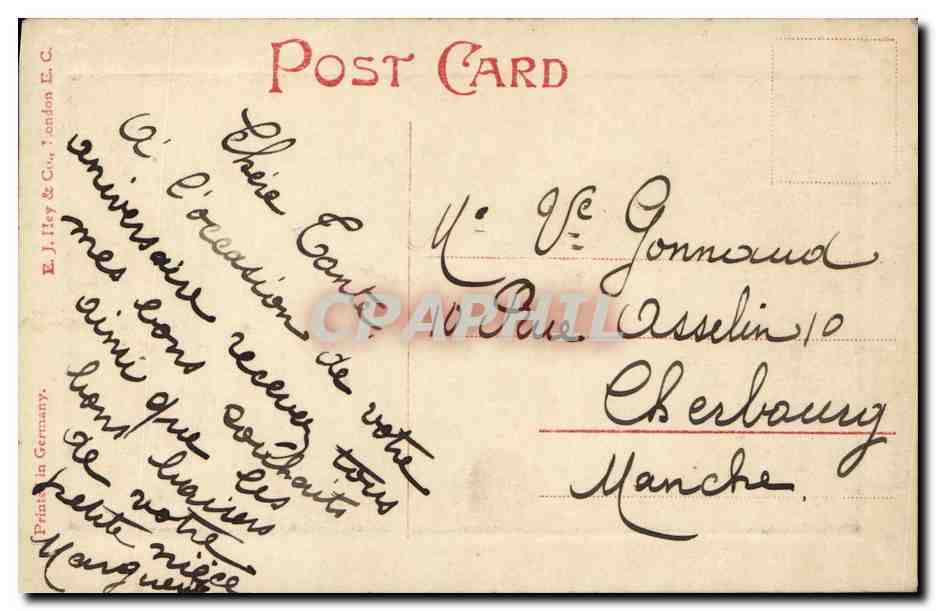 POST CARD
E. J. Hey & Co., London E. C.
Printed in Germany.
Chère Tante.
A l'occasion de votre
aniversaire recevez tous
mes bons souhaits
ainsi que les
bons baisers
de votre
petite nièce
Marguerite
Me Vve Gonnaud
10 Rue Asselin 10
Cherbourg
Manche.
CPAPHIL